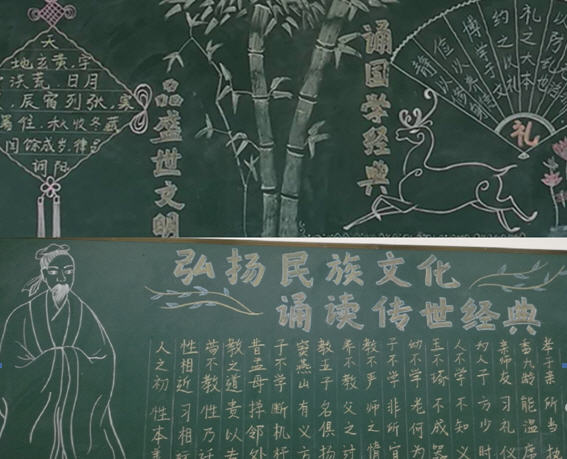 天
地玄黄,宇
洪荒 日月
,辰宿列张,寒
暑往,秋收冬藏
闰馀成岁,律吕
调阳
品盛世文明
诵国学经典
静以修身
俭以养德
博学于文
约之以礼
礼之大本
礼
弘扬民族文化
诵读传世经典
人之初 性本善
性相近 习相远
苟不教 性乃迁
教之道 贵以专
昔孟母 择邻处
子不学 断机杼
窦燕山 有义方
教五子 名俱扬
养不教 父之过
教不严 师之惰
子不学 非所宜
幼不学 老何为
玉不琢 不成器
人不学 不知义
为人子 方少时
亲师友 习礼仪
香九龄 能温席
孝于亲 所当执